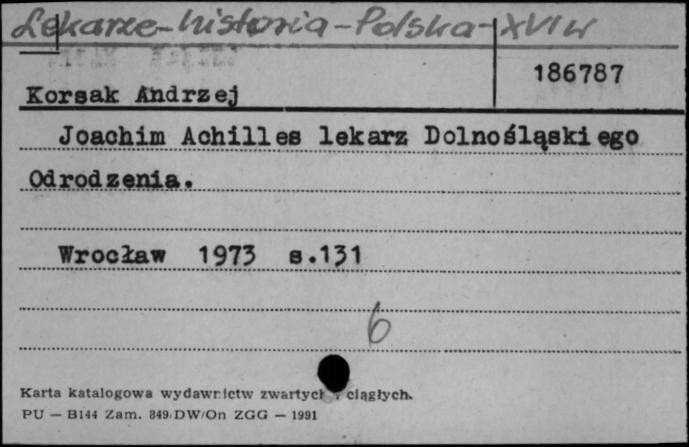 Lekarze-historia-Polska-XVI w
186787
Korsak Andrzej
Joachim Achilles lekarz Dolnośląskiego
Odrodzenia.
Wrocław 1973 s.131
6
Karta katalogowa wydawnictw zwartych i ciągłych.
PU — B144 Zam. 849/DW/On ZGG — 1991